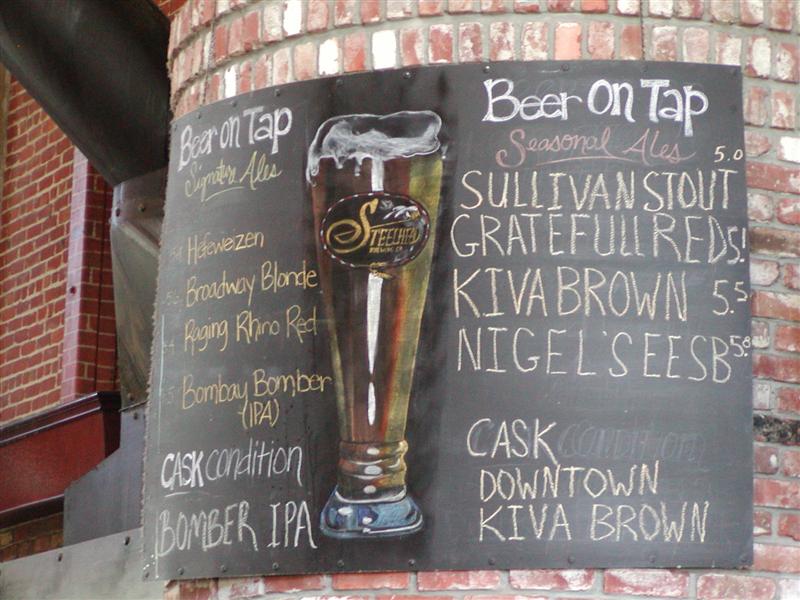 Beer on Tap
Signature Ales
Hefeweizen
Broadway Blonde
Raging Rhino Red
Bombay Bomber
(IPA)
CASK condition
BOMBER IPA
STEELHEAD
BREWING CO.
Beer On Tap
Seasonal Ales
5.0
SULLIVAN STOUT
GRATEFULL RED
KIVA BROWN 5.5
NIGEL'S EESB
CASK condition
DOWNTOWN
KIVA BROWN